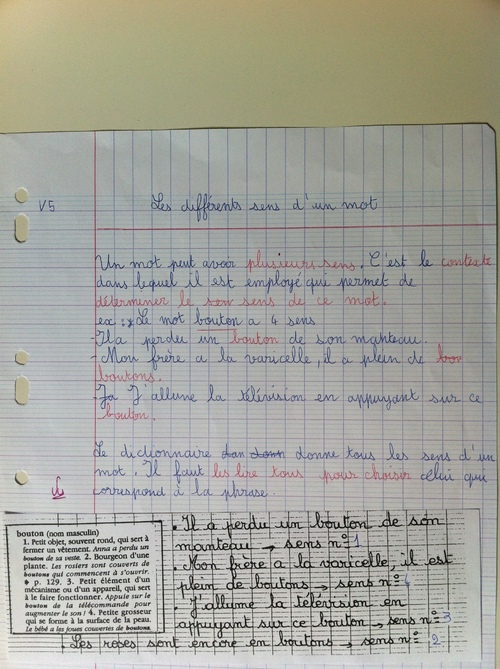 V5
Les différents sens d'un mot
Un mot peut avoir plusieurs sens. C'est le contexte
dans lequel il est employé qui permet de
déterminer le son sens de ce mot.
ex : Le mot bouton a 4 sens
- Il a perdu un bouton de son manteau.
- Mon frère a la varicelle, il a plein de bou
boutons.
- Ja J'allume la télévision en appuyant sur ce
bouton.
Le dictionnaire dan donn donne tous les sens d'un
mot. Il faut les lire tous pour choisir celui qui
correspond à la phrase.
bouton (nom masculin)
1. Petit objet, souvent rond, qui sert à
fermer un vêtement. Anna a perdu un
bouton de sa veste. 2. Bourgeon d'une
plante. Les rosiers sont couverts de
boutons qui commencent à s'ouvrir.
♦ p. 129. 3. Petit élément d'un
mécanisme ou d'un appareil, qui sert
à le faire fonctionner. Appuie sur le
bouton de la télécommande pour
augmenter le son ! 4. Petite grosseur
qui se forme à la surface de la peau.
Le bébé a les joues couvertes de boutons.
• Il a perdu un bouton de son
manteau → sens n° 1
• Mon frère a la varicelle, il est
plein de boutons → sens n° 4
• J'allume la télévision en
appuyant sur ce bouton → sens n° 3
• Les roses sont encore en boutons → sens n° 2